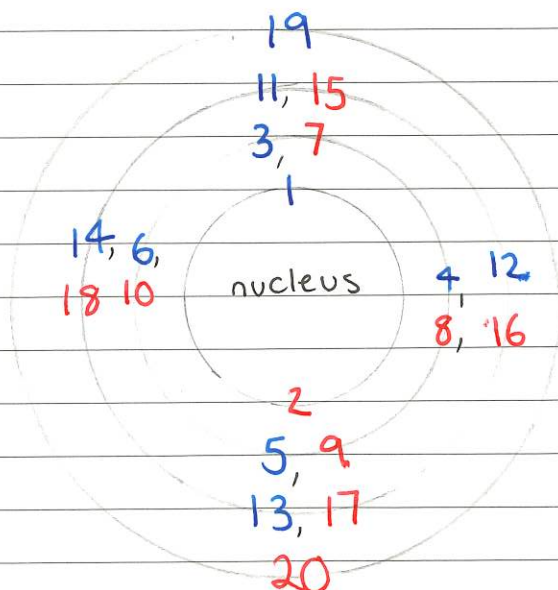 19
11, 15
3, 7
1
14, 6,
18 10
nucleus
4, 12
8, 16
2
5, 9
13, 17
20